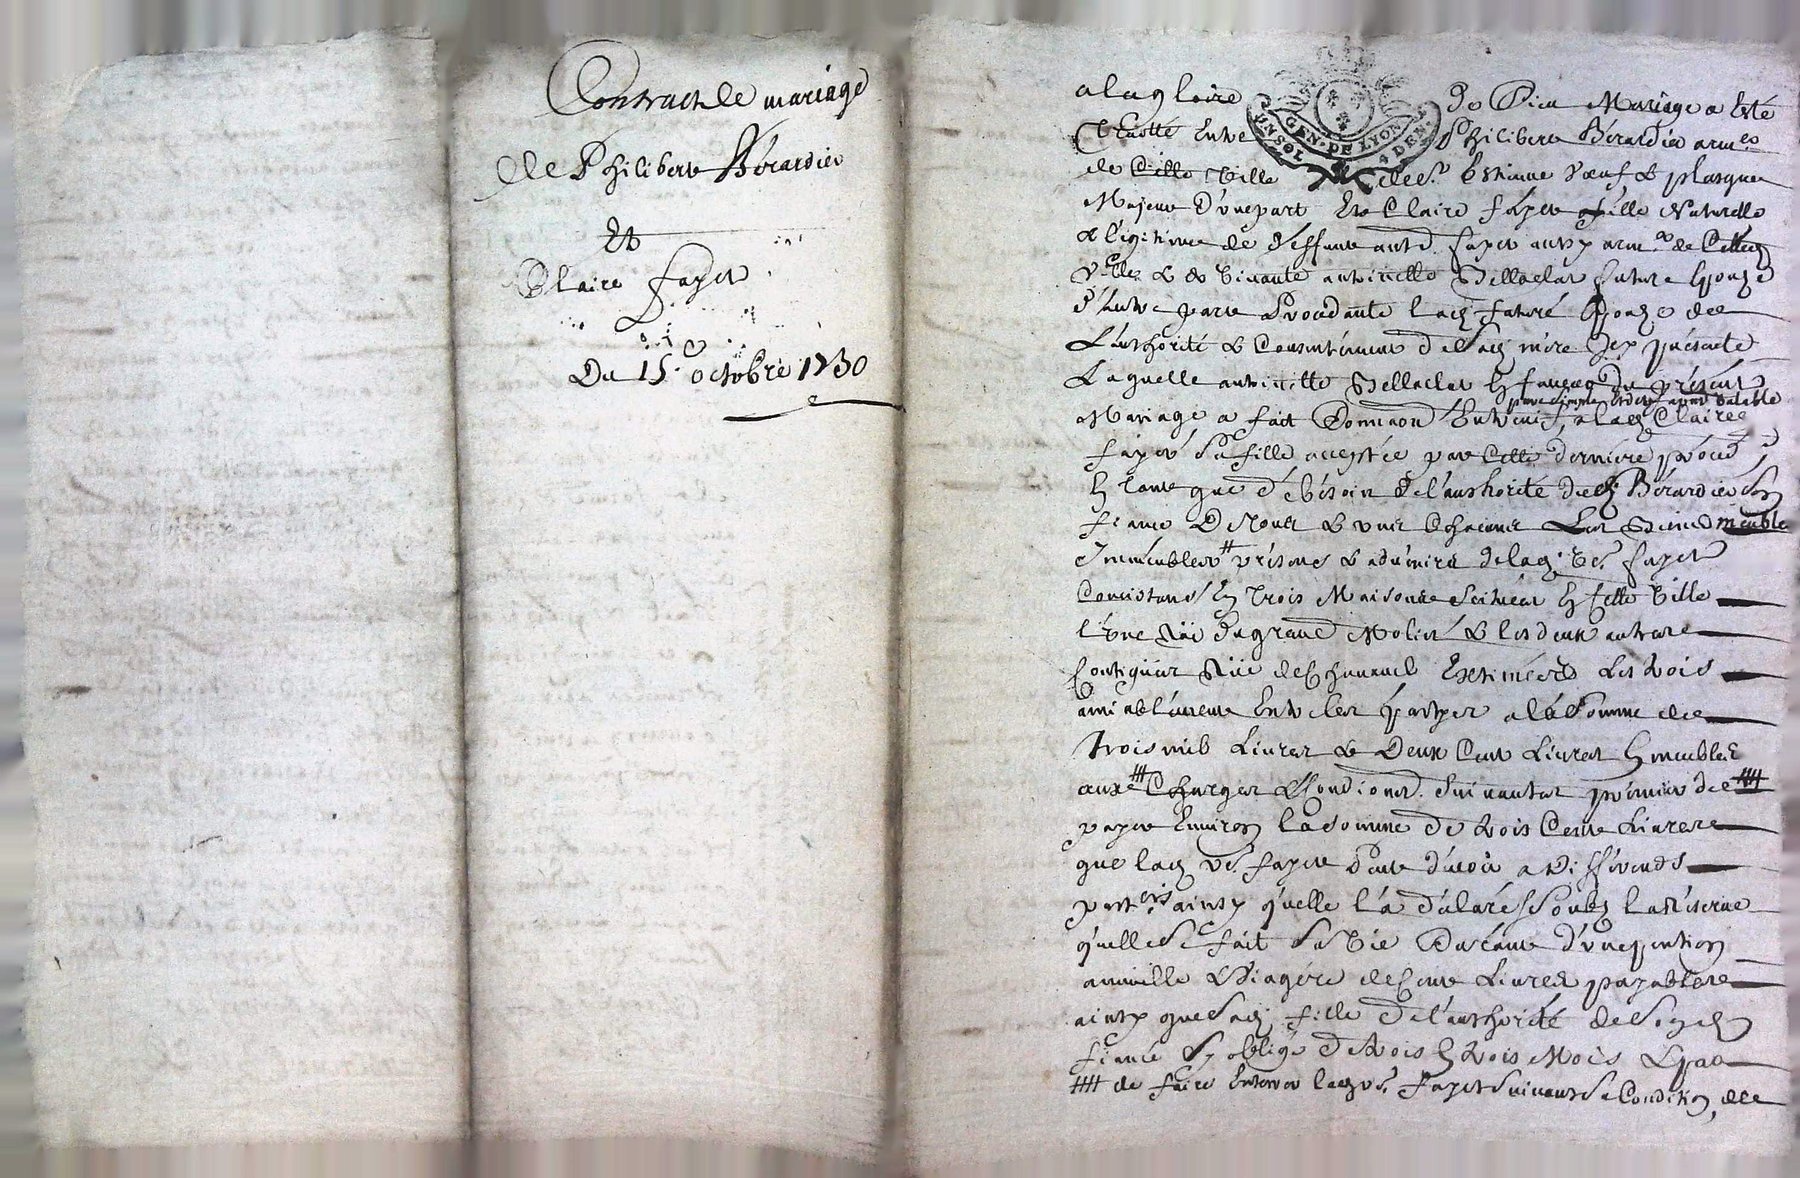 Contract de mariage
de Philibert Bérardier
Et
Claire fayet
Du 15e octobre 1730
a la gloire de Dieu Mariage a Esté
traitté Entre Philibert Bérardier armer
de Cette Ville de St Estienne Vœuf &
Majeur d'une part Et Claire fayet fille Naturelle
& légitime de deffunt antd fayet aussy armr de Cette
Ville & de Vivante antoinette future Epouze
d'autre part Procedante lad future Epouze de
L'authorité & Consentement de Sad mère Icy présente
Laquelle antoinette En faveur du présent
pure simple et
valable
Mariage a fait Donnaon Entre vifs a lad Claire
fayet Sa fille acceptée par Cette dernière proced
En tant que de bésoin de l'authorité dud Bérardier Son
fiancé De tous & uns Chacuns Les Biens meuble
Immeubles présents & advenirs de lad Ve fayet
Consistans En trois Maisons Scituées En Cette Ville
l'Une Rüe du grand Molier & les deux autres
Contigües Rüe de Extimées Les trois
amiablement Entre les partyes a la Somme de
trois mil Livres & Deux Cent Livres En meubles
aux Charges & Condions Suivantes prémier de
payer Environ la Somme de trois Cent Livres
que lad Ve fayet peut devoir a Differends
partis ainsy qu'elle l'a déclaré Soubs la Réserve
qu'elle Se fait Sa Vie Durant d'une pention
annuelle & Viagère de Cent Livres payables
ainsy que Sad fille de l'authorité de Sond
fiancé S'y oblige de trois En trois Mois & par
de faire lad Ve fayet Suivant Sa Condition, de
GEN. DE LYON
UN SOL 4 DEN.